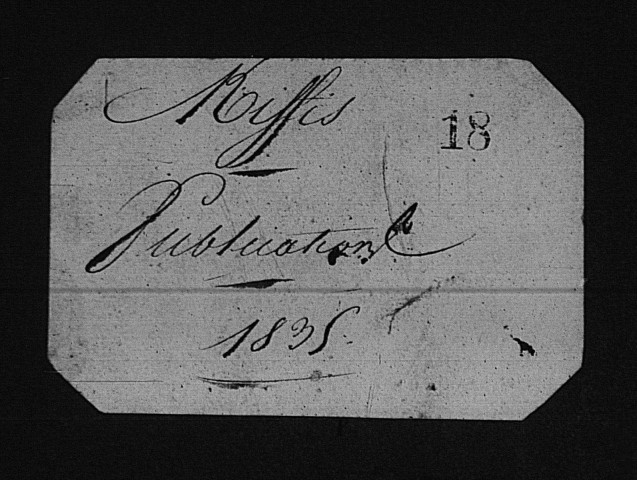 Kiffis
18
Publications
1835.